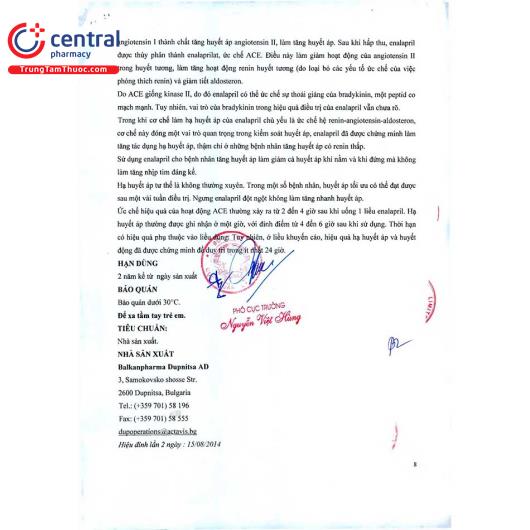 central
pharmacy
TrungTamThuoc.com
angiotensin I thành chất tăng huyết áp angiotensin II, làm tăng huyết áp. Sau khi hấp thu, enalapril
được thủy phân thành enalaprilat, ức chế ACE. Điều này làm giảm hoạt động của angiotensin II
trong huyết tương, làm tăng hoạt động renin huyết tương (do loại bỏ các yếu tố ức chế của việc
phóng thích renin) và giảm tiết aldosteron.
Do ACE giống kinase II, do đó enalapril có thể ức chế sự thoái giáng của bradykinin, một peptid co
mạch mạnh. Tuy nhiên, vai trò của bradykinin trong hiệu quả điều trị của enalapril vẫn chưa rõ.
Trong khi cơ chế làm hạ huyết áp của enalapril chủ yếu là ức chế hệ renin-angiotensin-aldosteron,
cơ chế này đóng một vai trò quan trọng trong kiểm soát huyết áp, enalapril đã được chứng minh làm
tăng tác dụng hạ huyết áp, thậm chí ở những bệnh nhân tăng huyết áp có renin thấp.
Sử dụng enalapril cho bệnh nhân tăng huyết áp làm giảm cả huyết áp khi nằm và khi đứng mà không
làm tăng nhịp tim đáng kể.
Hạ huyết áp tư thế là không thường xuyên. Trong một số bệnh nhân, huyết áp tối ưu có thể đạt được
sau một vài tuần điều trị. Ngưng enalapril đột ngột không làm tăng nhanh huyết áp.
Ức chế hiệu quả của hoạt động ACE thường xảy ra từ 2 đến 4 giờ sau khi uống 1 liều enalapril. Hạ
huyết áp thường được ghi nhận ở một giờ, với đỉnh điểm từ 4 đến 6 giờ sau khi sử dụng. Thời hạn
có hiệu quả phụ thuộc vào liều dùng. Tuy nhiên, ở liều khuyến cáo, hiệu quả hạ huyết áp và huyết
động đã được chứng minh để duy trì trong ít nhất 24 giờ.
HẠN DÙNG
2 năm kể từ ngày sản xuất
BẢO QUẢN
Bảo quản dưới 30°C.
Để xa tầm tay trẻ em.
TIÊU CHUẨN:
Nhà sản xuất.
NHÀ SẢN XUẤT
PHÓ CỤC TRƯỞNG
Nguyễn Việt Hùng
LIMIT
Balkanpharma Dupnitsa AD
3, Samokovsko shosse Str.
2600 Dupnitsa, Bulgaria
Tel.: (+359 701) 58 196
Fax: (+359 701) 58 555
dupoperations@actavis.bg
Hiệu đính lần 2 ngày : 15/08/2014
8